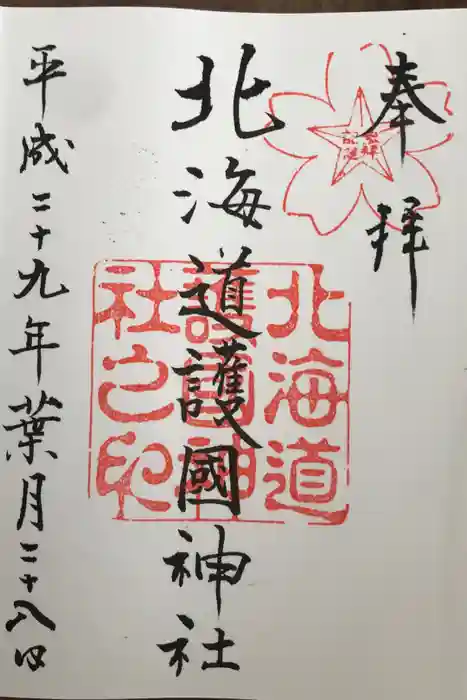 奉拝
北海道護國神社
平成二十九年葉月二十八日
北海道
護國神
社之印